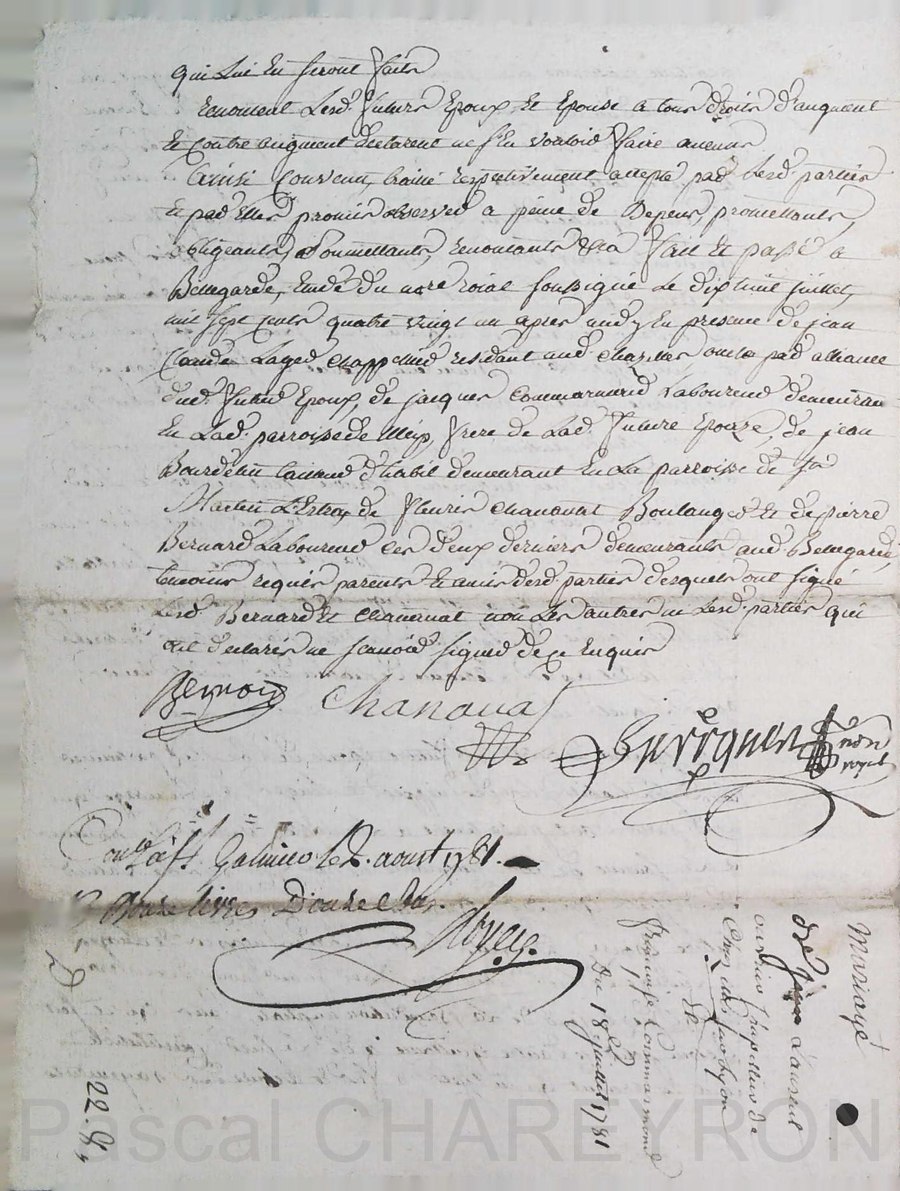 qui lui en seront faits
Renoncent lesd. futurs Epoux et Epouse a tous droits d'augment
et contre augment declarent ne s'en vouloir faire aucuns
Ainsi Convenu, traité respectivement accepté par lesd. parties
et par elles promis observer a peine de Depens, promettants,
obligeants, soumettants, renonçants &a fait et passé a
Bellegarde, Etude du no.re roial soussigné le dixhuit juillet,
mil sept cents quatre vingt un apres midy En presence de jean
Claude Lager chappellier residant aud. oncle par alliance
dud. futur Epoux, de jacques Commarmond Laboureur demeurant
en lad. parroisse de frere de lad. future Epouse, de jean
tailleur d'habit demeurant en la parroisse de St
Martin L'Estra, de fleurie Chanavat Boulanger et de pierre
Bernard Laboureur ces deux derniers demeurants aud. Bellegarde,
temoins requis parents et amis desd. parties desquels ont signé
lesd. Bernard et Chanavat non les autres ni lesd. parties qui
ont declarés ne sçavoir signer de ce Enquis
Bernard Chanavat
not.re royal
Con.lé à St. Galmier le 2. aoust 1781.
Douze livres Douze
Mariage
de Jean
Lyon
françoise Commarmond
Du 18 juillet 1781
22.
Pascal CHAREYRON